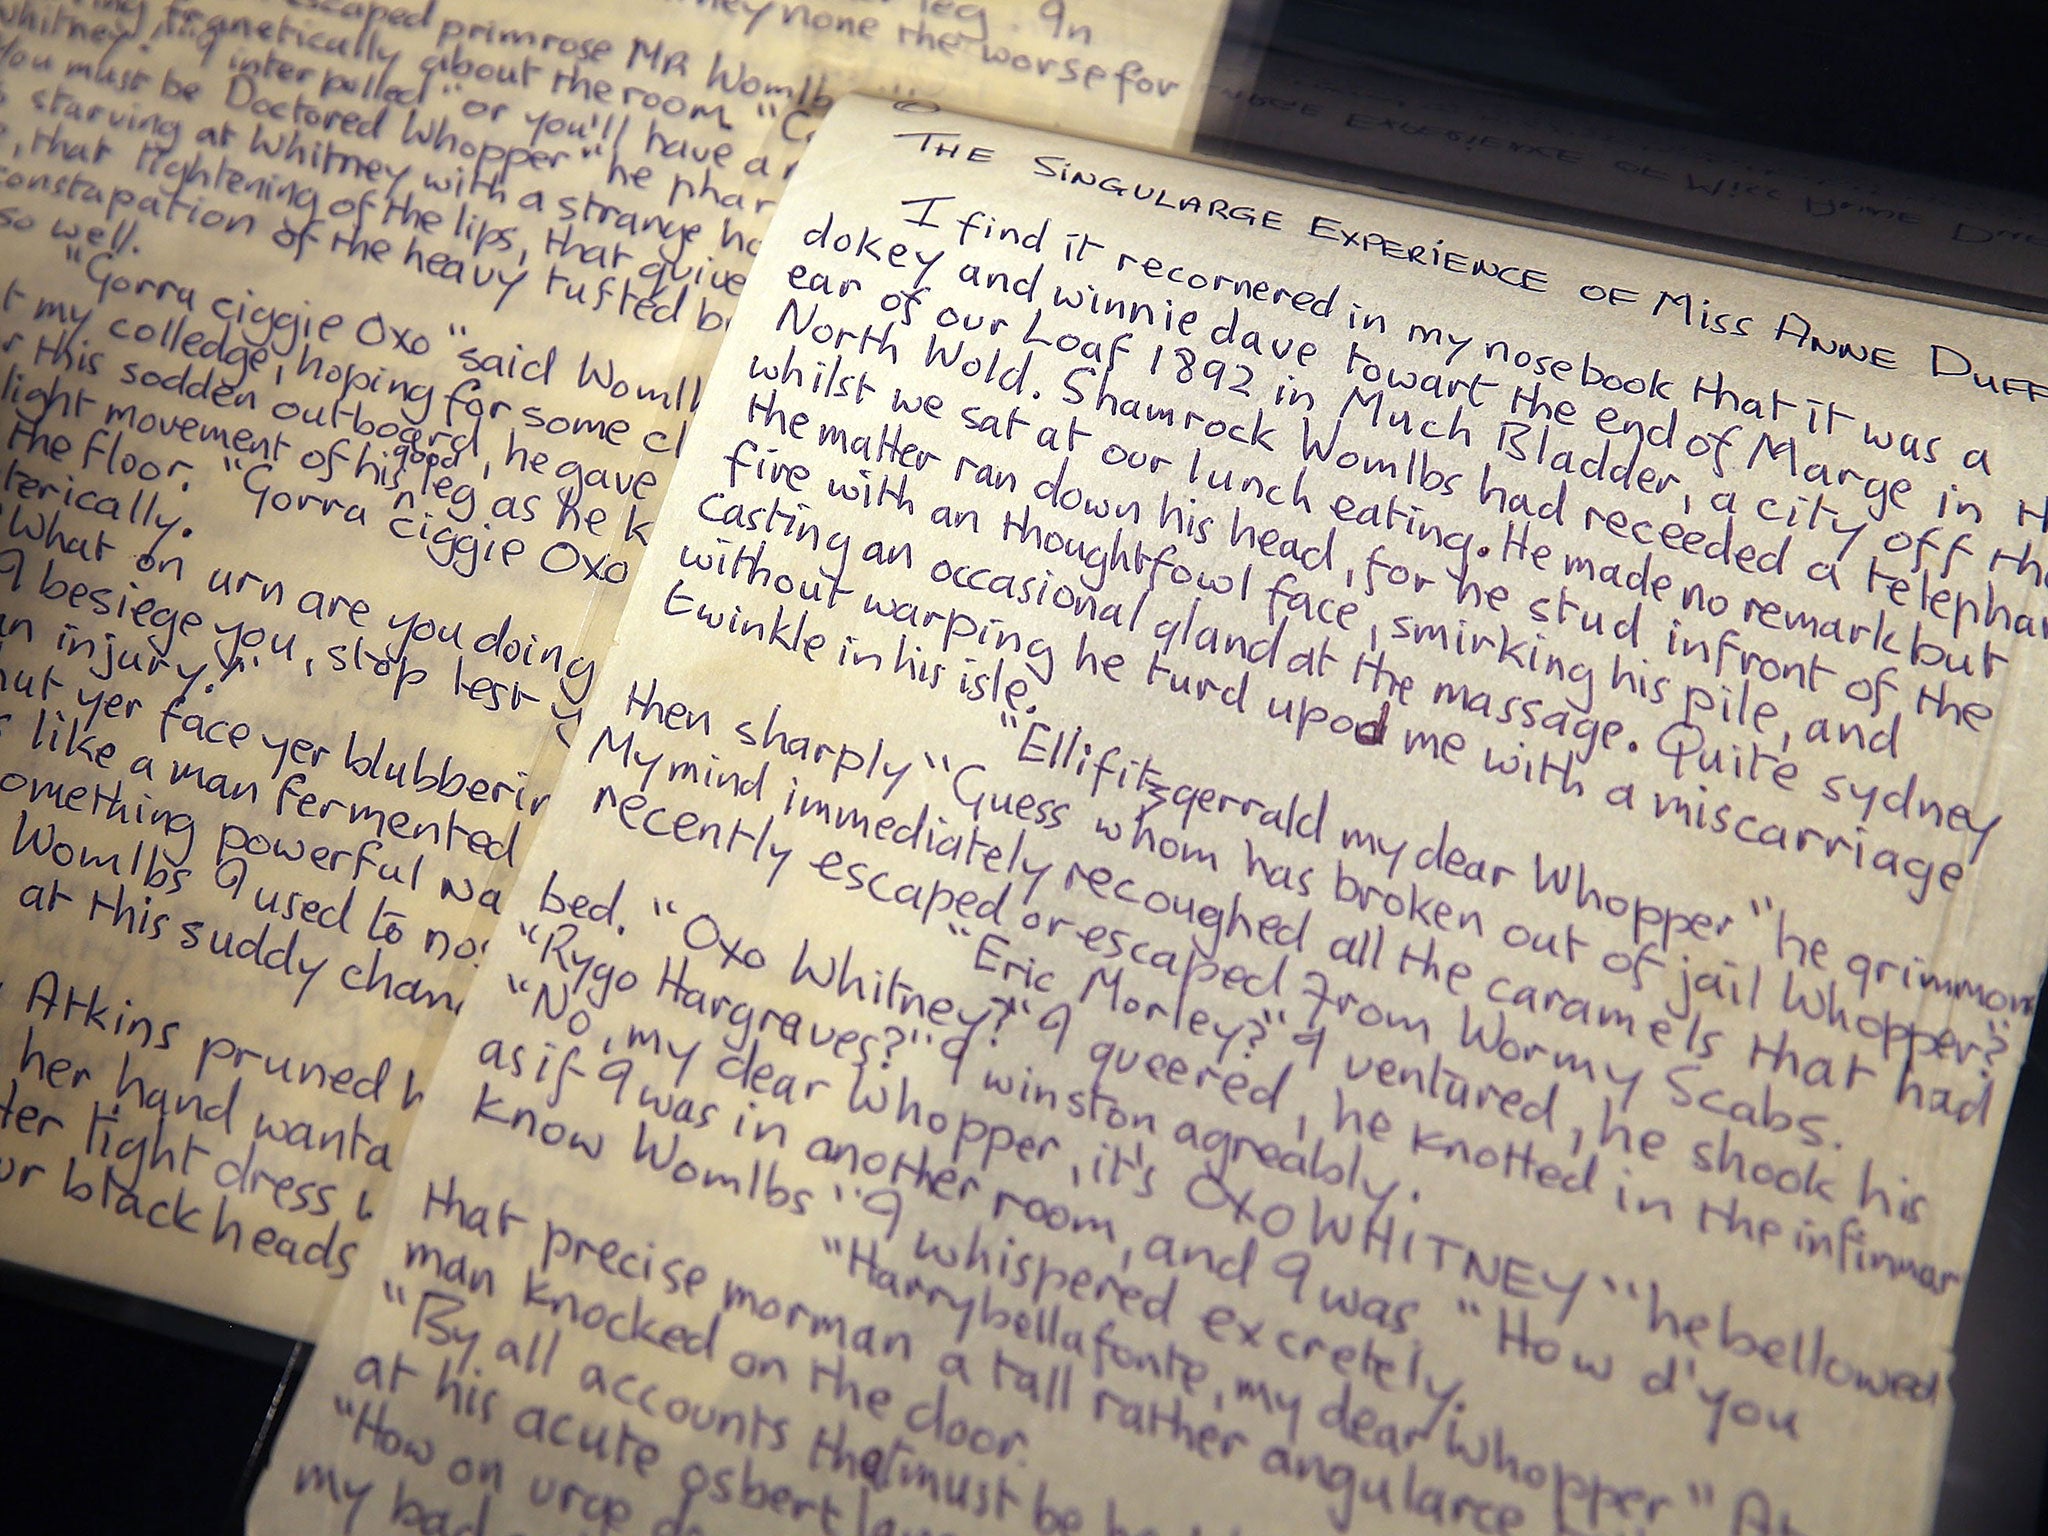 leg. In
ney none the worse for
escaped primrose MR Womlb
franetically about the room. "C
Whitney." I interpolled "or you'll have a
You must be Doctored Whopper" he phar
starving at Whitney with a strange
, that tightening of the lips, that quive
constapation of the heavy tufted b
so well.
"Gorra ciggie Oxo" said Womlb
t my colledge, hoping for some cl
r this sodden outboard, he gave
light movement of his good leg as he k
the floor. "Gorra ciggie Oxo
terically.
What on urn are you doing
I besiege you, stop lest y
n injury."
hut yer face yer blubberin
like a man fermented
omething powerful na
Womlbs I used to no
at this suddy chan
Atkins pruned h
her hand wanta
ter tight dress
ur blackheads
THE SINGULARGE EXPERIENCE OF MISS ANNE DUFF
I find it recornered in my nosebook that it was a
dokey and winnie dave towart the end of Marge in th
ear of our Loaf 1892 in Much Bladder, a city off the
North Wold. Shamrock Womlbs had receeded a telephar
whilst we sat at our lunch eating. He made no remark but
the matter ran down his head, for he stud infront of the
fire with an thoughtfowl face, smirking his pile, and
casting an occasional gland at the massage. Quite sydney
without warping he turd upod me with a miscarriage
twinkle in his isle.
"Ellifitzgerrald my dear Whopper" he grimmond
then sharply "Guess whom has broken out of jail Whopper?"
My mind immediately recoughed all the caramels that had
recently escaped or escaped from Wormy Scabs.
"Eric Morley?" I ventured, he shook his
bed. "Oxo Whitney?" I queered, he knotted in the infirmar
"Rygo Hargraves?" I winston agreably.
"No, my dear Whopper, it's OXO WHITNEY" he bellowed
as if I was in another room, and I was. "How d'you
know Womlbs" I whispered excretely.
"Harrybellafonte, my dear Whopper" At
that precise morman a tall rather angularce
man knocked on the door.
"By all accounts that must be
at his acute osbert
"How on
my bad